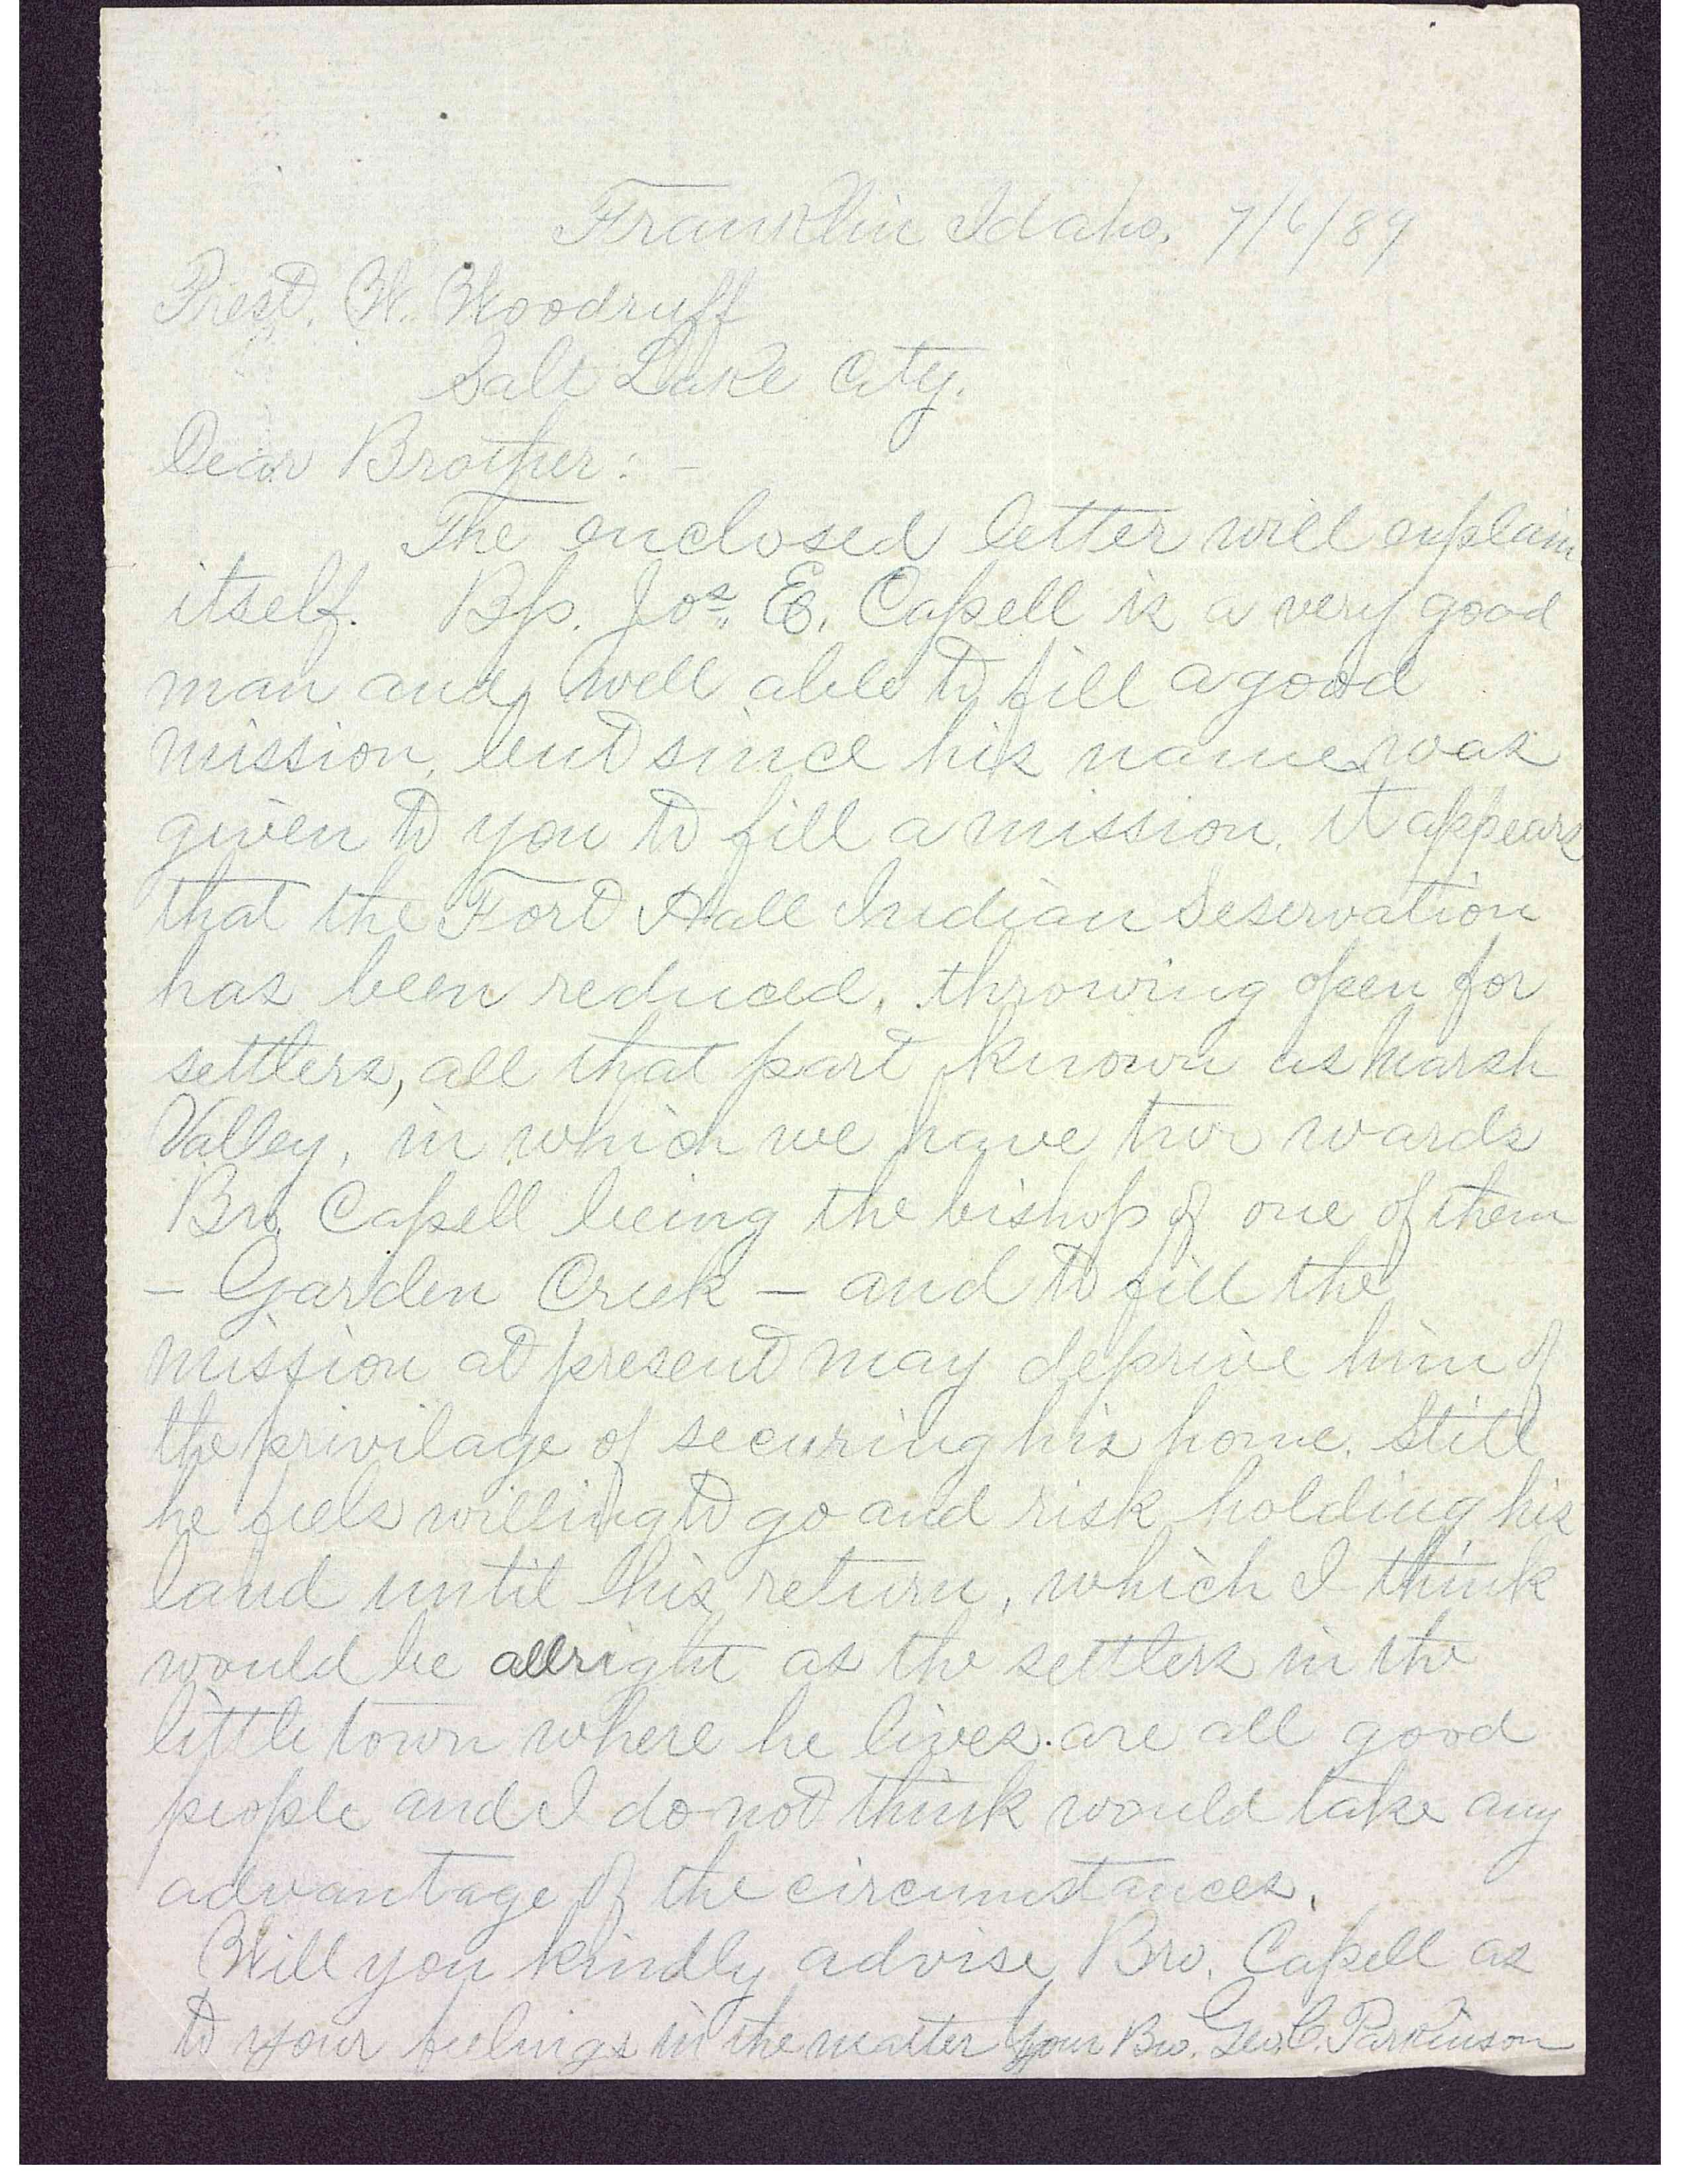 Franklin Idaho, 7/6/89
Prest. W. Woodruff
Salt Lake City.
Dear Brother: -
The enclosed letter will explain
itself. Bp. Jos. E. Capell is a very good
man and well able to fill a good
mission, but since his name was
given to you to fill a mission, it appears
that the Fort Hall Indian Seservation
has been reduced, throwing open for
settlers, all that part known as Marsh
Valley, in which we have two wards
Bro. Capell being the bishop of one of them
- Garden Creek - and to fill the
mission at present may deprive him of
the privilage of securing his home. Still
he feels willing to go and risk holding his
land until his return, which I think
would be allright as the settlers in the
little town where he lives are all good
people and I do not think would take any
advantage of the circumstances.
Will you kindly advise Bro. Capell as
to your feelings in the matter Your Bro. Geo. C. Parkinson